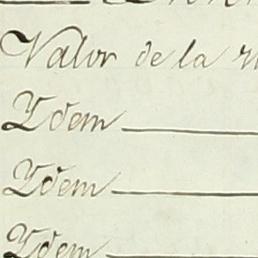 Valor de la
Ydem
Ydem
Ydem